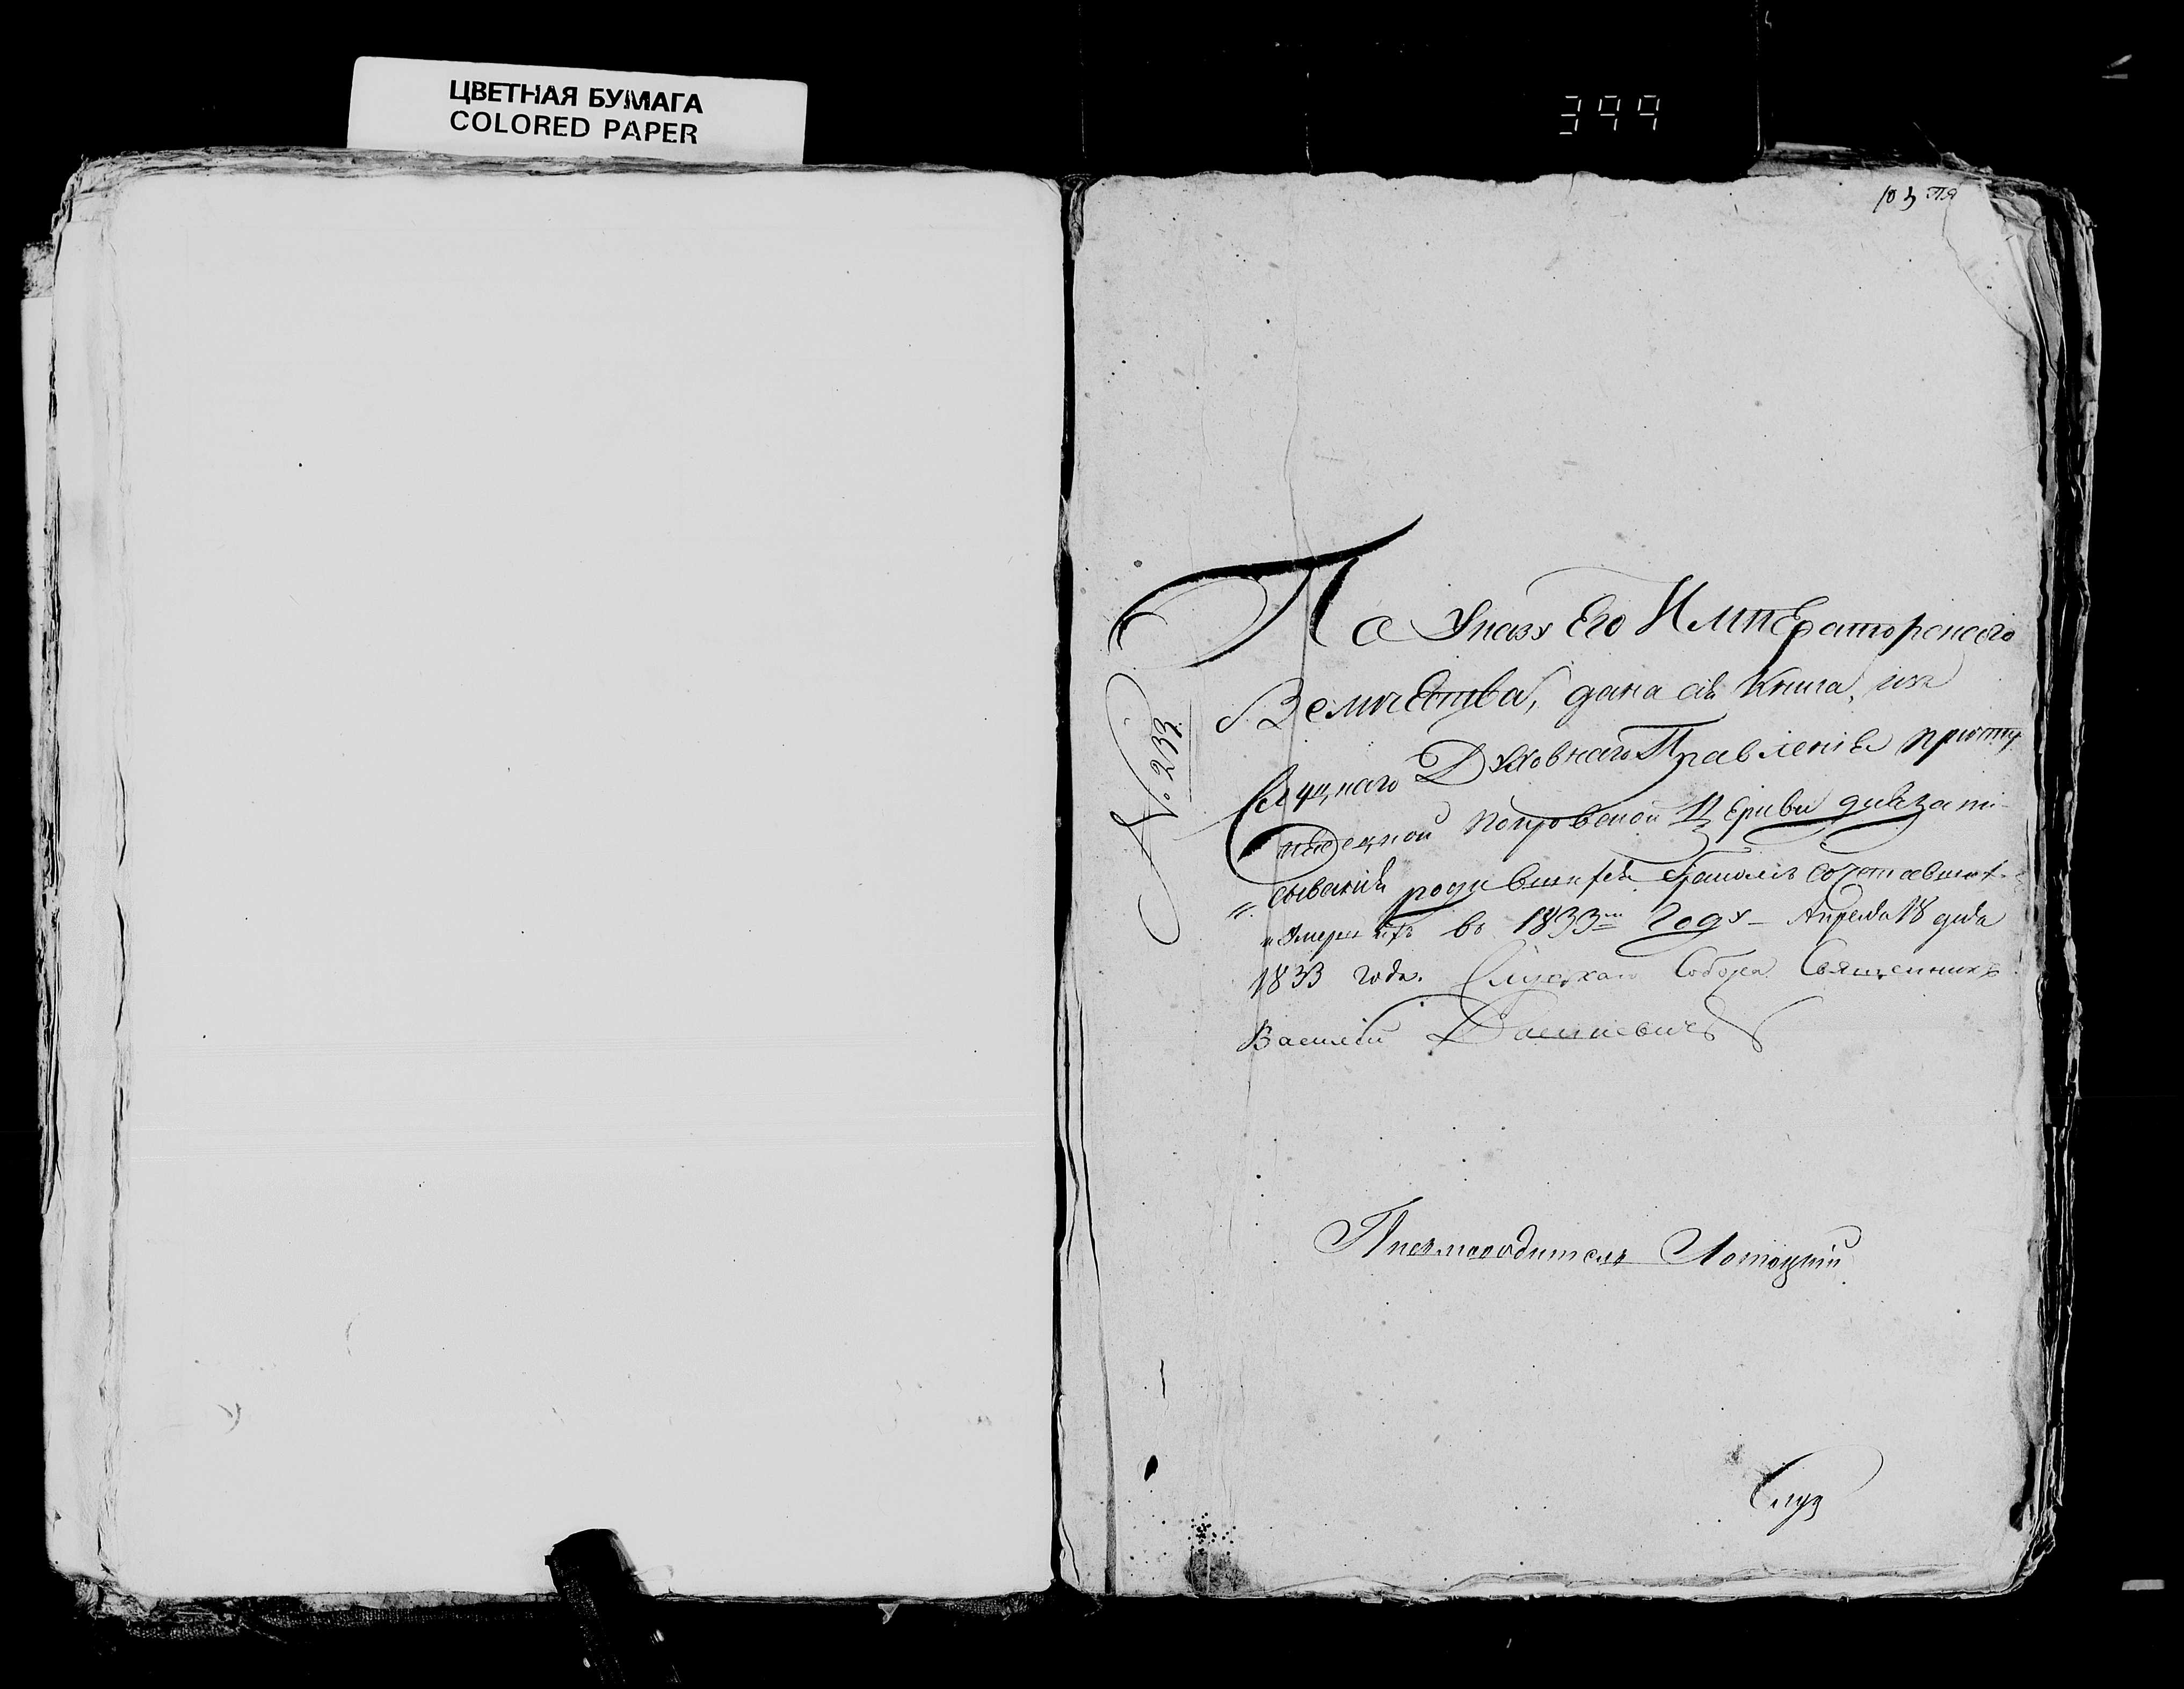 ЦВЕТНАЯ БУМАГА
COLORED PAPER
399
103
№ 233.
По Указу Его Императорскаго
Величества, дана сія Книга, изъ
Слуцкаго Духовнаго Правленія
Покровской Церкви для запи-
сыванія родившихся бракомъ
и умершихъ въ 1833 году Апреля 18 дня
1833 года. Слуцкаго Собора Священникъ
Василій
Писмоводитель
Слуц